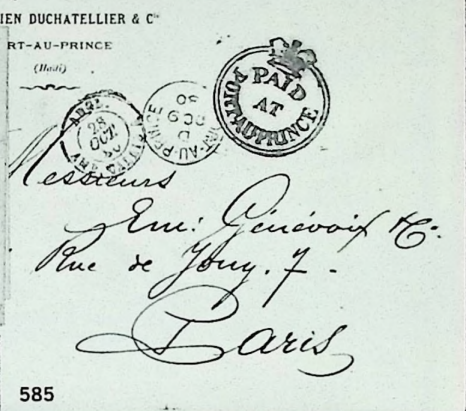 IEN DUCHATELLIER & Cie
RT-AU-PRINCE
(Haiti)
PAID
AT
PORT-AU-PRINCE
PORT-AU-PRINCE
D
OC 9
80
ANGL.
28
OCT
80
Messieurs
Em: Génévoix & Co.
Rue de Jouy. 7 -
Paris
585